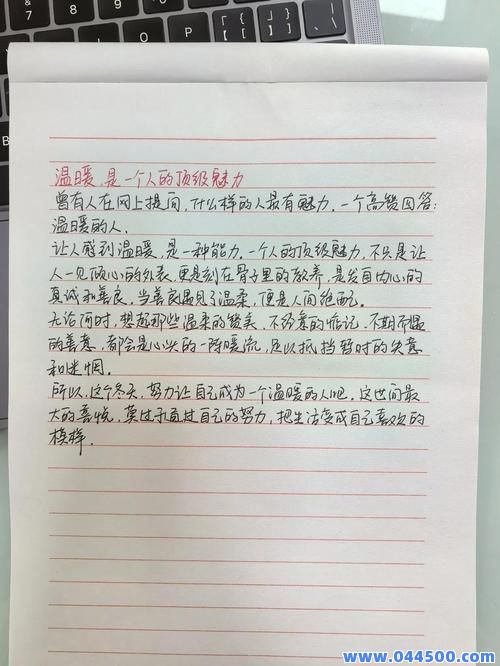 O
P
温暖,是一个人的顶级魅力
曾有人在网上提问,什么样的人最有魅力。一个高赞回答:
温暖的人。
让人感到温暖,是一种能力。一个人的顶级魅力,不只是让
人一见倾心的外表,更是刻在骨子里的教养,是发自内心的
真诚和善良,当善良遇见了温柔,便是人间绝配。
无论何时,想起那些温柔的赞美,不经意的惦记,不期而遇
的善意,都会是心头的一阵暖流,足以抵挡暂时的失意
和迷惘。
所以,这个冬天,努力让自己成为一个温暖的人吧。这世间最
大的喜悦,莫过于通过自己的努力,把生活变成自己喜欢的
模样.
www.044500.com